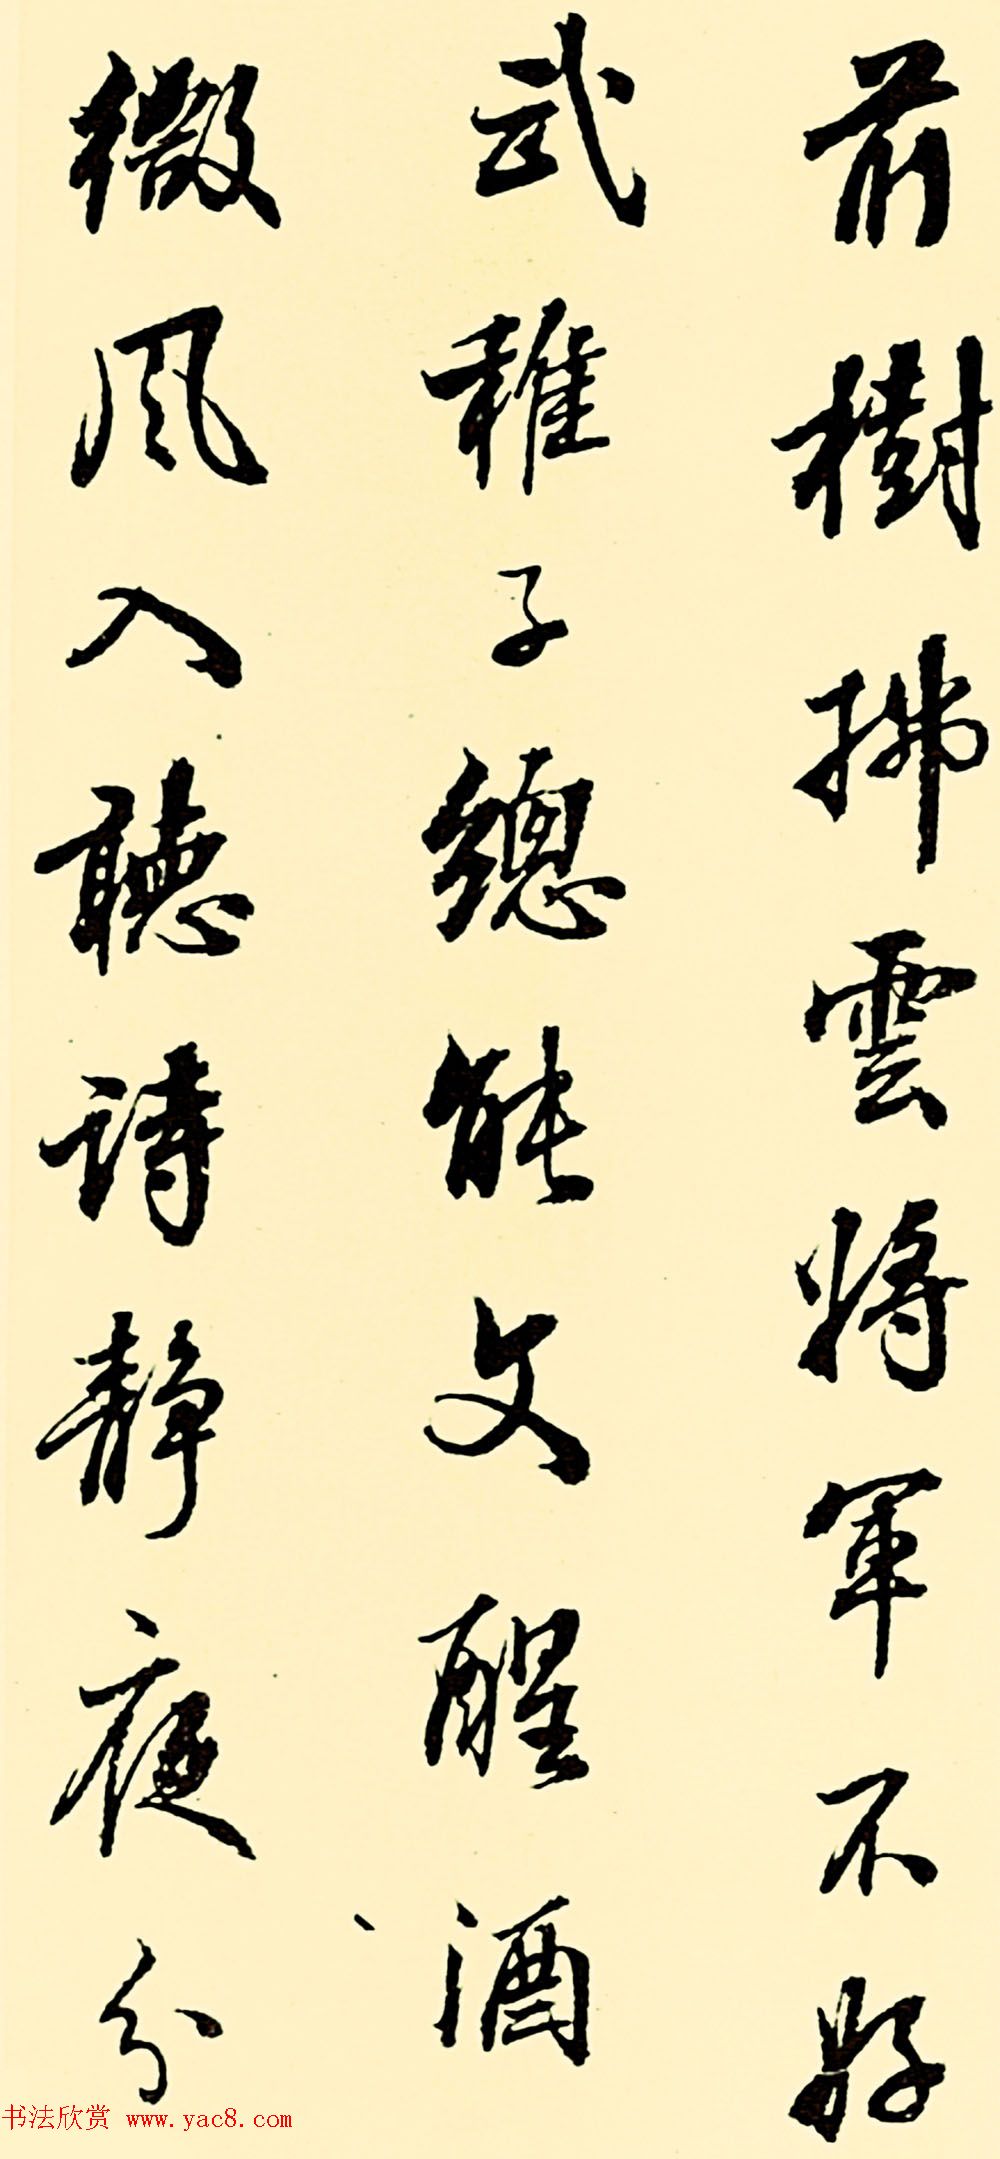 前樹拂雲將軍不好
武稚子總能文醒酒
微風入聽詩靜夜分
书法欣赏 www.yac8.com